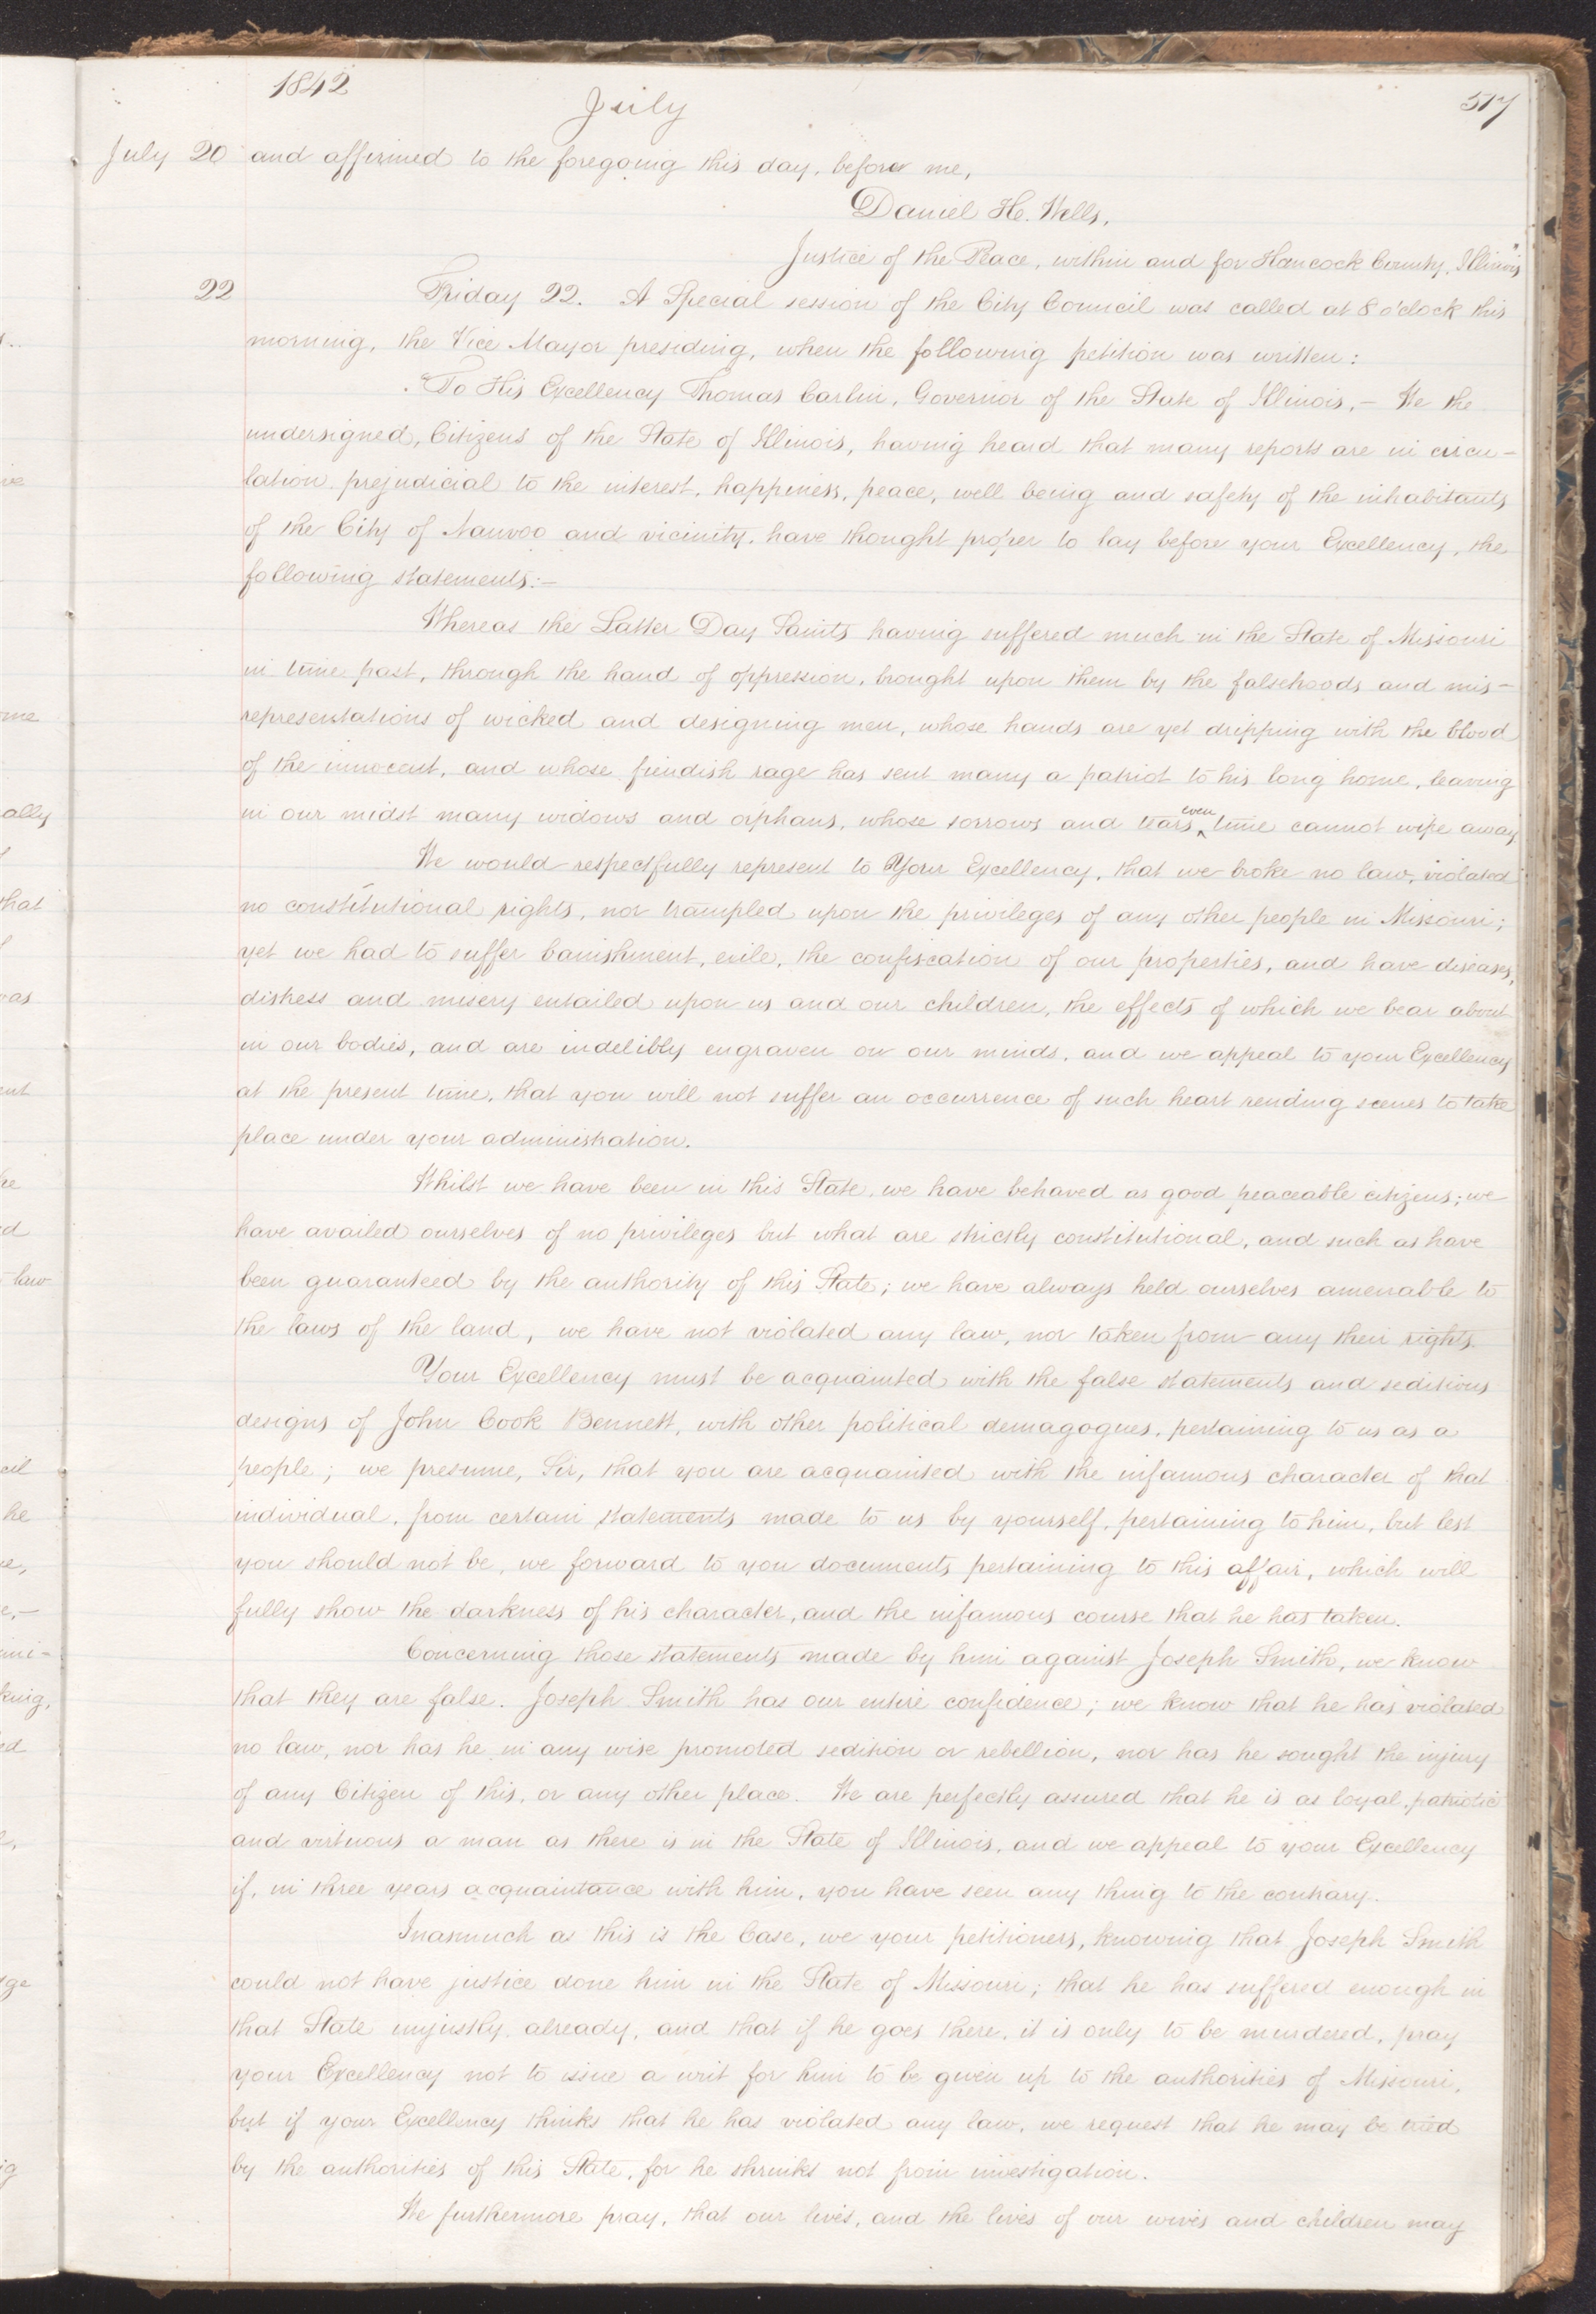 1842
July
517
July 20 and affirmed to the foregoing this day, before me,
Daniel H. Wells,
Justice of the Peace, within and for Hancock County, Illinois
22 Friday 22. A Special session of the City Council was called at 8 o'clock this
morning, the Vice Mayor presiding, when the following petition was written:
"To His Excellency Thomas Carlin, Governor of the State of Illinois,— We the
undersigned, Citizens of the State of Illinois, having heard that many reports are in circu-
lation prejudicial to the interest, happiness, peace, well being and safety of the inhabitants
of the City of Nauvoo and vicinity, have thought proper to lay before your Excellency, the
following statements:—
Whereas the Latter Day Saints having suffered much in the State of Missouri
in time past, through the hand of oppression, brought upon them by the falsehoods and mis-
representations of wicked and designing men, whose hands are yet dripping with the blood
of the innocent, and whose fiendish rage has sent many a patriot to his long home, leaving
in our midst many widows and orphans, whose sorrows and tears ^even time cannot wipe away.
We would respectfully represent to Your Excellency, that we broke no law, violated
no constitutional rights, nor trampled upon the privileges of any other people in Missouri;
yet we had to suffer banishment, exile, the confiscation of our properties, and have diseases,
distress and misery entailed upon us and our children, the effects of which we bear about
in our bodies, and are indelibly engraven on our minds, and we appeal to your Excellency
at the present time, that you will not suffer an occurrence of such heart rending scenes to take
place under your administration.
Whilst we have been in this State, we have behaved as good peaceable citizens; we
have availed ourselves of no privileges but what are strictly constitutional, and such as have
been guaranteed by the authority of this State; we have always held ourselves amenable to
the laws of the land, we have not violated any law, nor taken from any their rights.
Your Excellency must be acquainted with the false statements and seditious
designs of John Cook Bennett, with other political demagogues, pertaining to us as a
people; we presume, Sir, that you are acquainted with the infamous character of that
individual, from certain statements made to us by yourself, pertaining to him, but lest
you should not be, we forward to you documents pertaining to this affair, which will
fully show the darkness of his character, and the infamous course that he has taken.
Concerning those statements made by him against Joseph Smith, we know
that they are false. Joseph Smith has our entire confidence; we know that he has violated
no law, nor has he in any wise promoted sedition or rebellion, nor has he sought the injury
of any Citizen of this, or any other place. We are perfectly assured that he is as loyal, patriotic
and virtuous a man as there is in the State of Illinois, and we appeal to your Excellency
if, in three years acquaintance with him, you have seen any thing to the contrary.
Inasmuch as this is the Case, we your petitioners, knowing that Joseph Smith
could not have justice done him in the State of Missouri; that he has suffered enough in
that State unjustly already, and that if he goes there, it is only to be murdered, pray
your Excellency not to issue a writ for him to be given up to the authorities of Missouri,
but if your Excellency thinks that he has violated any law, we request that he may be tried
by the authorities of this State, for he shrinks not from investigation.
We furthermore pray, that our lives, and the lives of our wives and children may